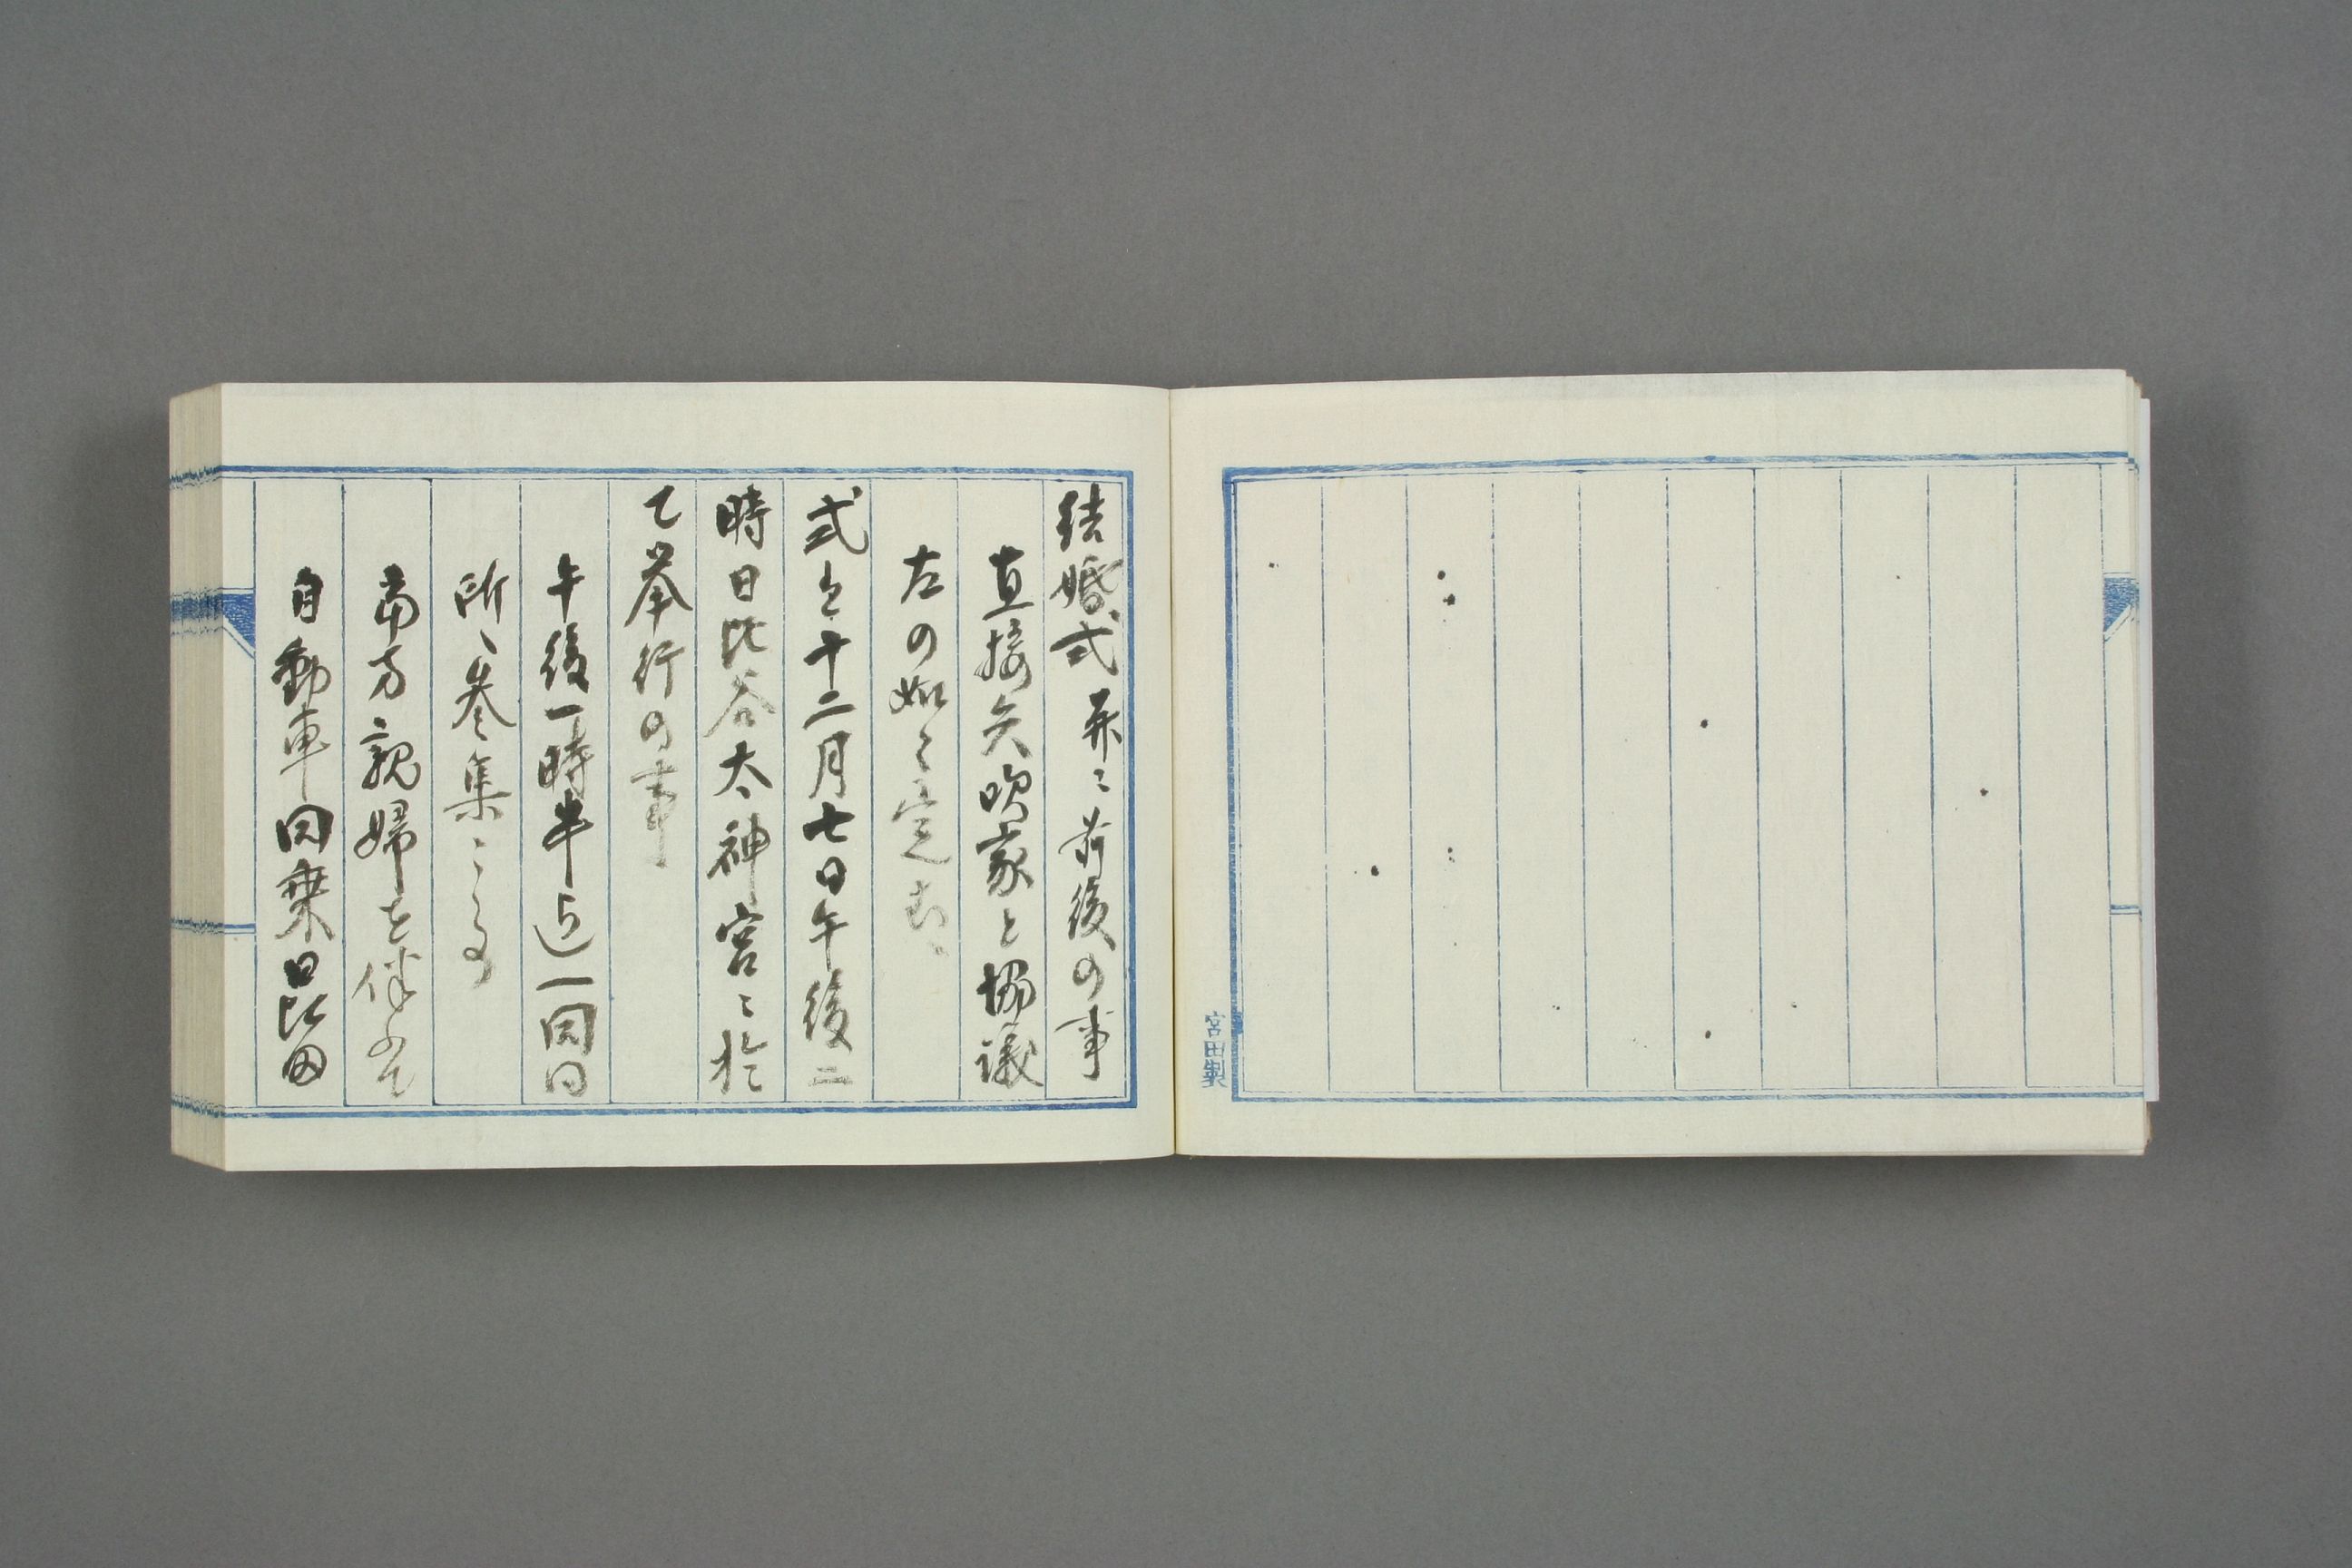 宮田製
結婚式並ニ前後の事
直接矢吹家と協議
左の如く定む、
式を十二月七日午後二
時日比谷大神宮ニ於
て挙行の事
午後一時半迄一同同
所へ参集こと
当方親婦を伴ふて
自動車同乗日比